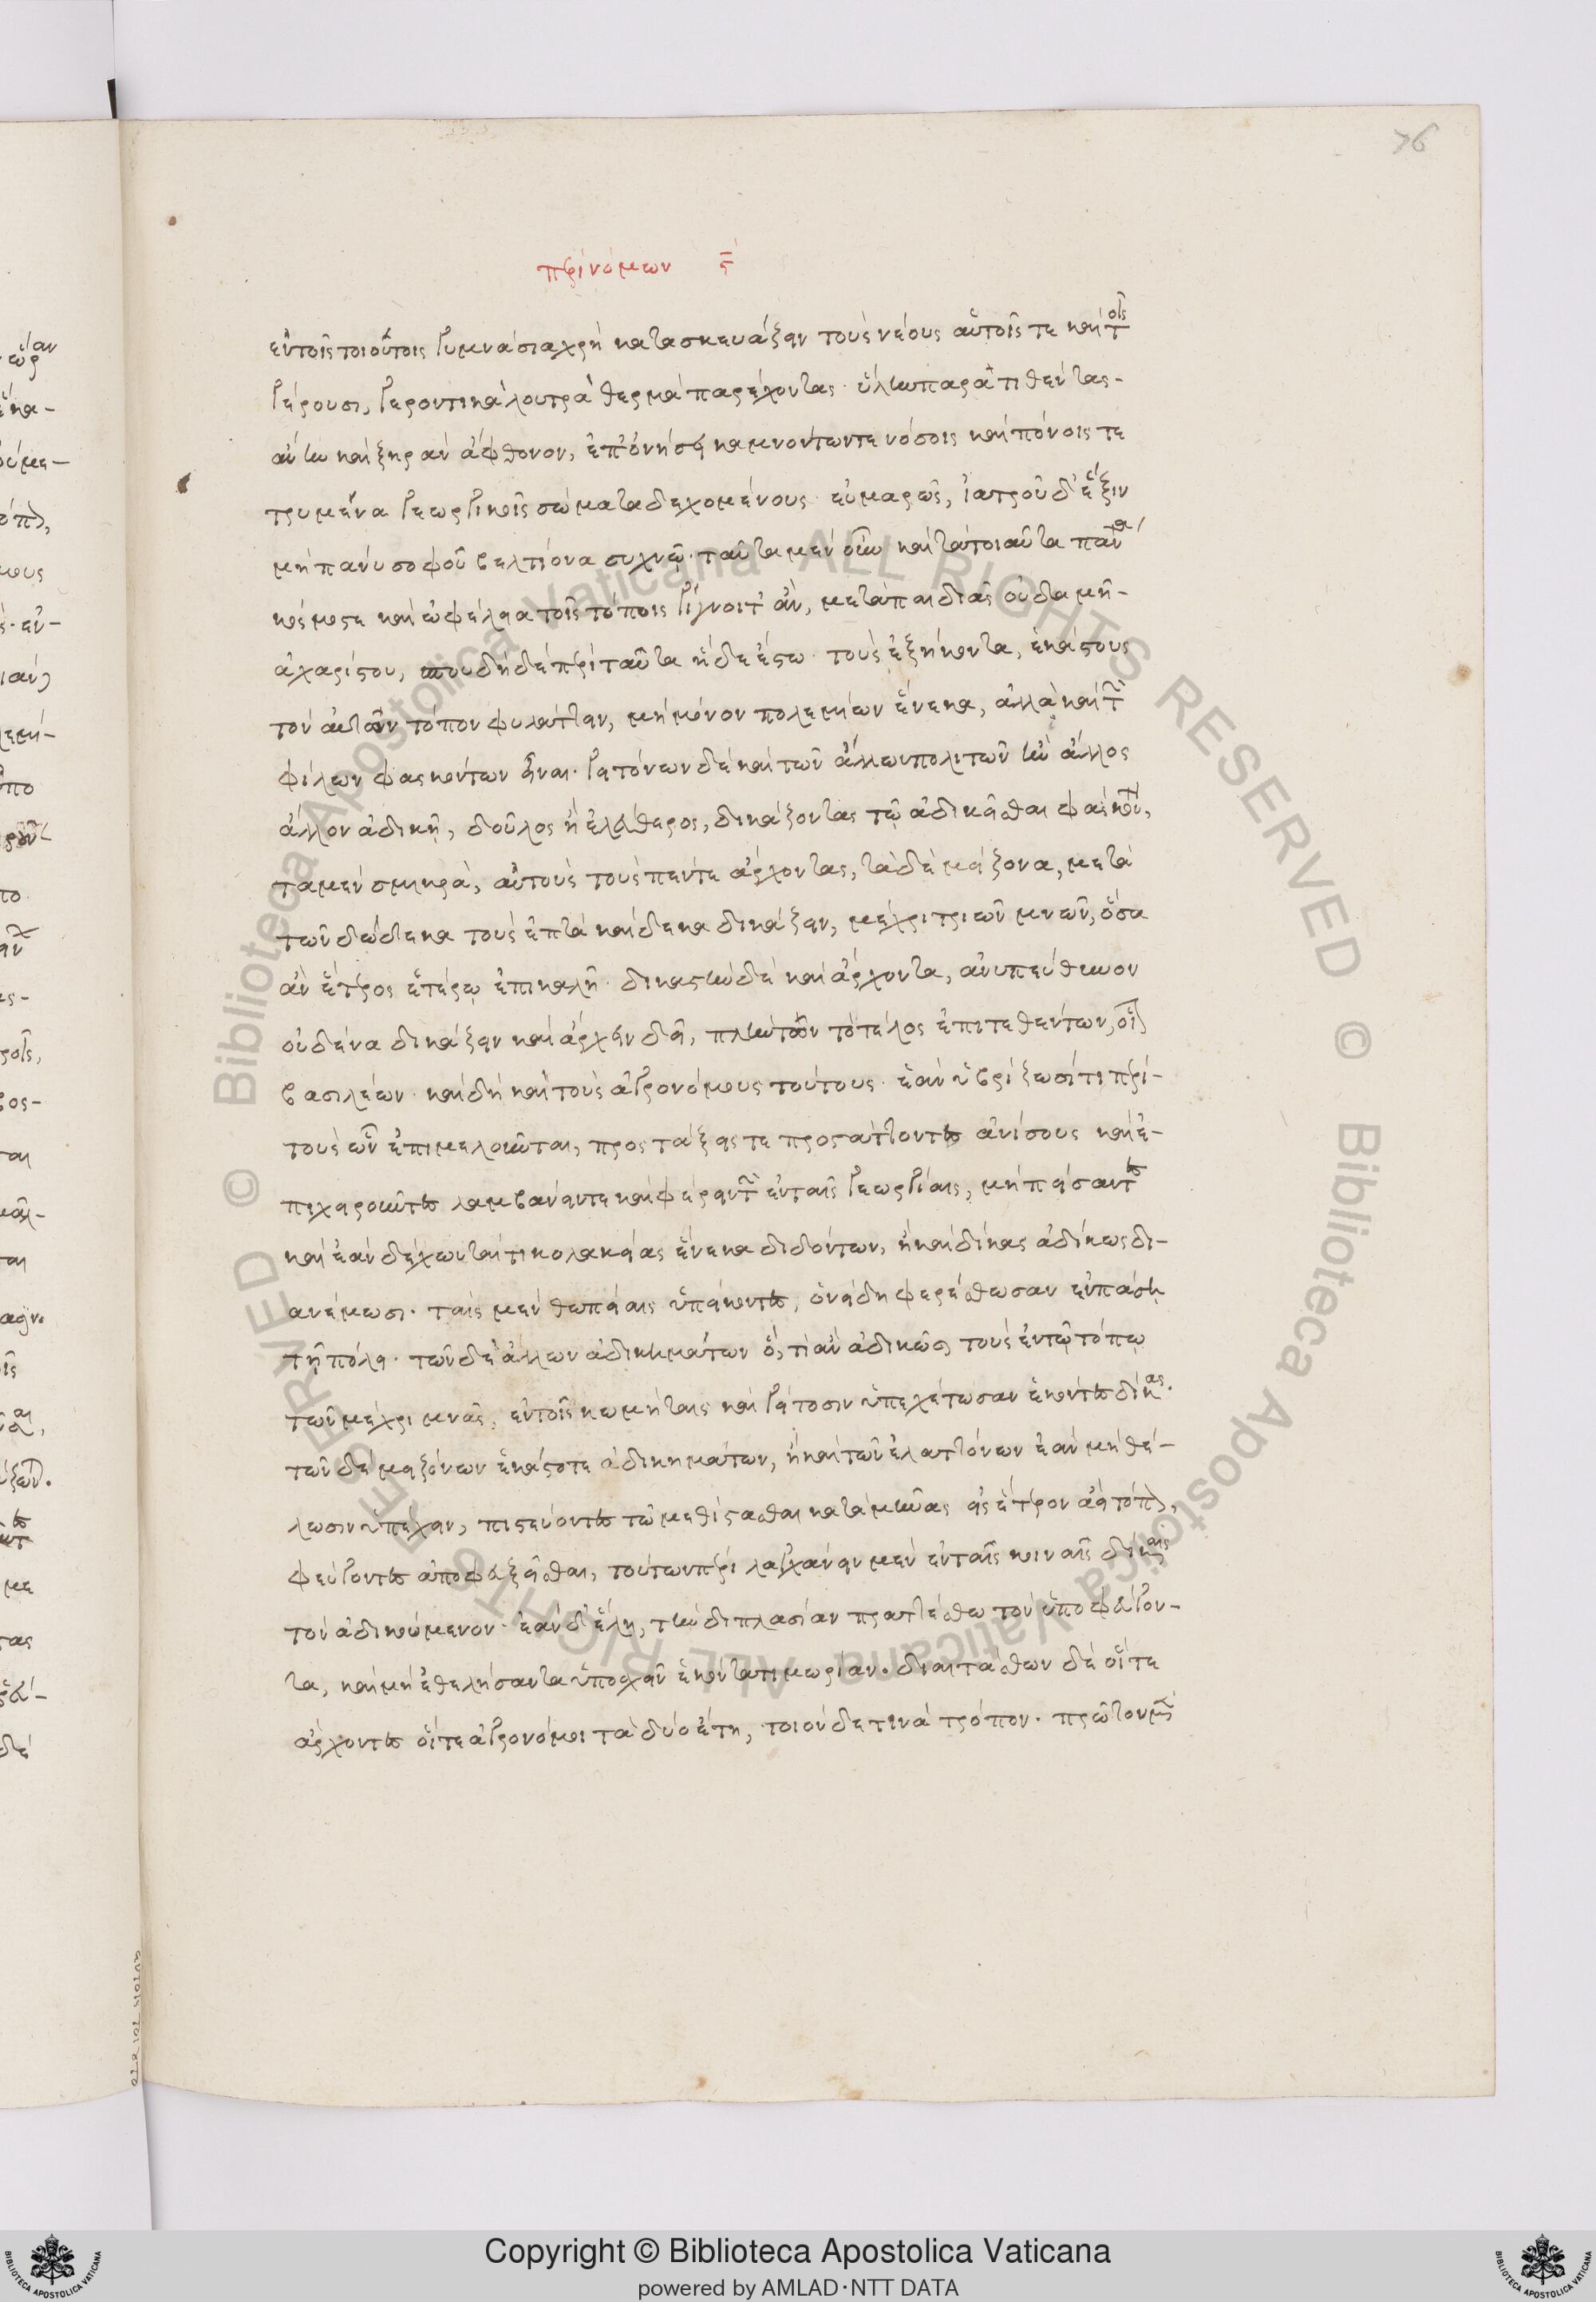 76
περὶ νόμων ϛ
ἐν τοῖς τοιούτοις γυμνάσια χρὴ κατασκευάζειν τοὺς νέους αὐτοῖς τε καὶ τοῖς
γέρουσι, γεροντικὰ λουτρὰ θερμὰ παρέχοντας· ὕλην παρατιθέντας-
αὔην καὶ ξηρὰν ἄφθονον, ἐπ' ὀνήσει καμνόντων τε νόσοις καὶ πόνοις τε
τρυμένα γεωργικοῖς σώματα δεχομένους εὐμαρῶς, ἰατροῦ δέξιν
μὴ πάνυ σοφοῦ βελτίονα συχνῷ· ταῦτα μὲν οὖν καὶ τὰ τοιαῦτα πάντα
κόσμος τε καὶ ὠφέλεια τοῖς τόποις γίγνοιτ' ἂν, μετὰ παιδιᾶς οὐδαμῆ-
ἀχαρίστου, σπουδὴ δὲ περὶ ταῦτα ἥδε ἔστω· τοὺς ἑξήκοντα, ἑκάστους
τὸν αὑτῶν τόπον φυλάττειν, μὴ μόνον πολεμίων ἕνεκα, ἀλλὰ καὶ τῶν
φίλων φασκόντων εἶναι· γειτόνων δὲ καὶ τῶν ἄλλων πολιτῶν ἢν ἄλλος
ἄλλον ἀδικῇ, δοῦλος ἢ ἐλεύθερος, δικάζοντας τῷ ἀδικεῖσθαι φάσκοντι,
τὰ μὲν σμικρὰ, αὐτοὺς τοὺς πέντε ἄρχοντας, τὰ δὲ μείζονα, μετὰ
τῶν δώδεκα τοὺς ἑπτὰ καὶ δέκα δικάζειν, μέχρι τριῶν μνῶν, ὅσα
ἂν ἕτερος ἑτέρῳ ἐπικαλῇ· δικαστὴν δὲ καὶ ἄρχοντα, ἀνυπεύθυνον
οὐδένα δικάζειν καὶ ἄρχειν δεῖ, πλὴν τῶν τὸ τέλος ἐπιτεθέντων, οἷον
βασιλέων· καὶ δὴ καὶ τοὺς ἀγρονόμους τούτους· ἐὰν ὑβρίζωσί τι περὶ-
τοὺς ὧν ἐπιμελοῦνται, προστάξεις τε προσάττοντες ἀνίσους καὶ ἐ-
πιχειροῦντες λαμβάνειν τε καὶ φέρειν τῶν ἐν ταῖς γεωργίαις, μὴ πείσαντες
καὶ ἐὰν δέχωνταί τι κολακείας ἕνεκα διδόντων, ἢ καὶ δίκας ἀδίκως δι-
ανέμωσι· ταῖς μὲν θωπείαις ὑπείκοντες, ὀνείδη φερέσθωσαν ἐν πάσῃ
τῇ πόλει· τῶν δὲ ἄλλων ἀδικημάτων ὅ, τι ἂν ἀδικῶσι τοὺς ἐν τῷ τόπῳ
τῶν μέχρι μνᾶς, ἐν τοῖς κωμήταις καὶ γείτοσιν ὑπεχέτωσαν ἑκόντες δίκας·
τῶν δὲ μειζόνων ἑκάστοτε ἀδικημάτων, ἢ καὶ τῶν ἐλαττόνων ἐὰν μὴ θέ-
λωσιν ὑπέχειν, πιστεύοντες τῷ μεθίστασθαι κατὰ μῆνας εἰς ἕτερον ἀεὶ τόπον,
φεύγοντες ἀποφευξεῖσθαι, τούτων περὶ λαγχάνειν μὲν ἐν ταῖς κοιναῖς δίκαις
τὸν ἀδικούμενον· ἐὰν δ' ἕλῃ, τὴν διπλασίαν πραττέσθω τὸν ὑποφεύγον-
τα, καὶ μὴ ἐθελήσαντα ὑποσχεῖν ἑκόντα τιμωρίαν· διαιτάσθων δὲ οἵ τε
ἄρχοντες οἵ τε ἀγρονόμοι τὰ δύο ἔτη, τοιόνδε τινὰ τρόπον· πρῶτον μὲν
Copyright © Biblioteca Apostolica Vaticana
powered by AMLAD·NTT DATA